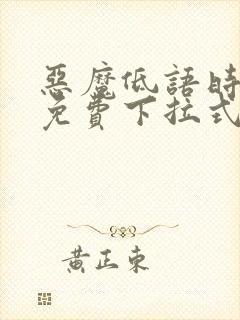 惡魔低語時
免費下拉式
黃正東